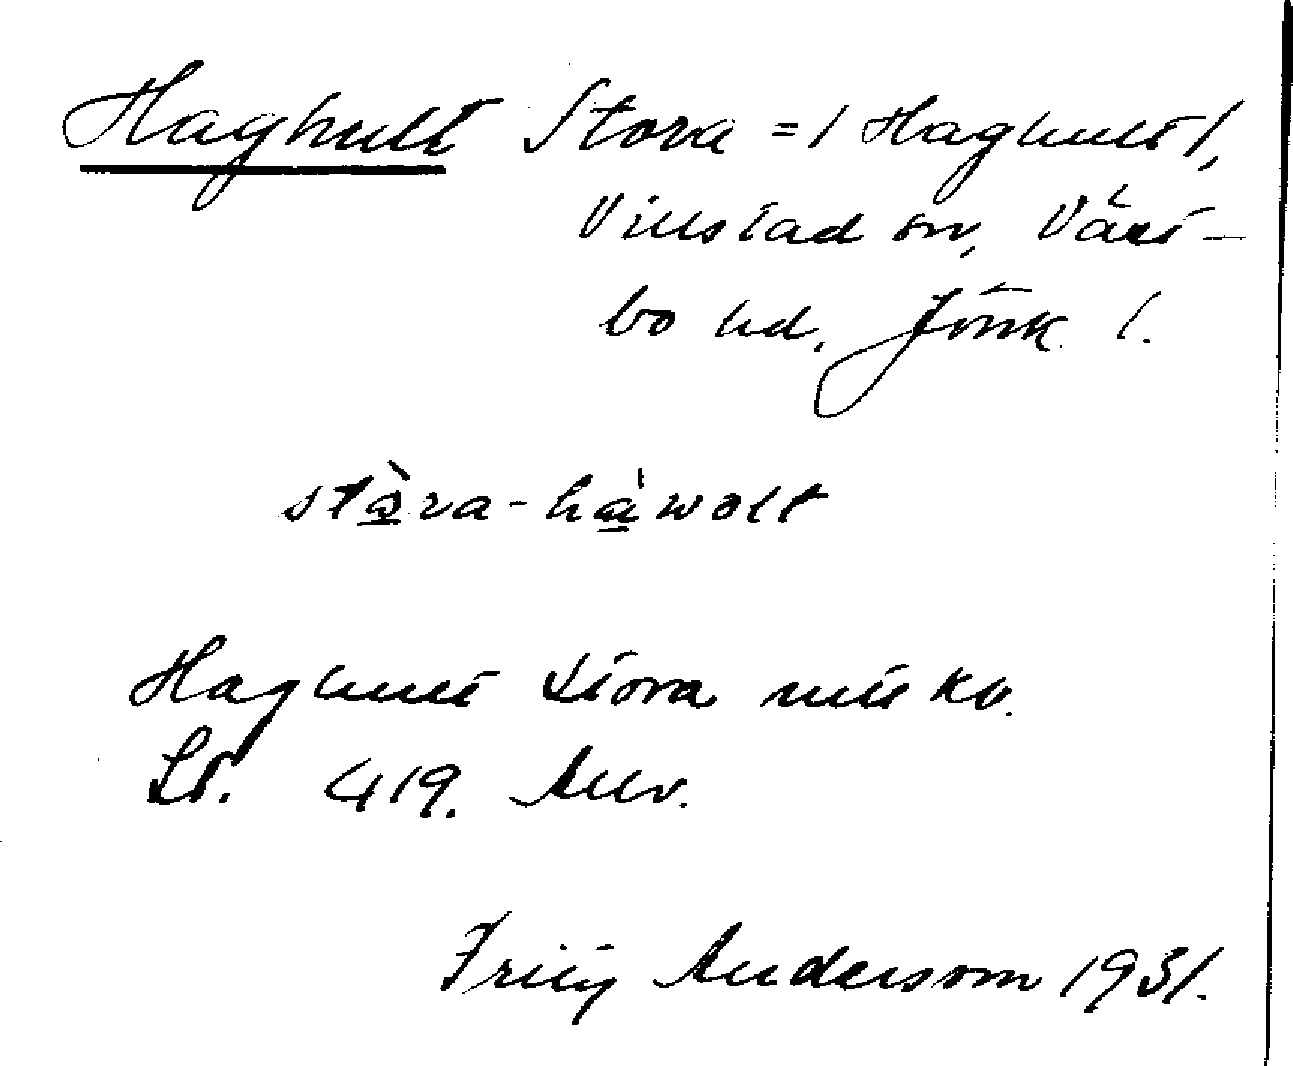 Haghult Stora = / Haghult /,
Villstad sn, Väst-
bo hd, Jönk. l.
stò̱ra-hà̱wolt
Haghult Stora utsko.
Lt. 419. Allv.
Fritz Andersson 1931.